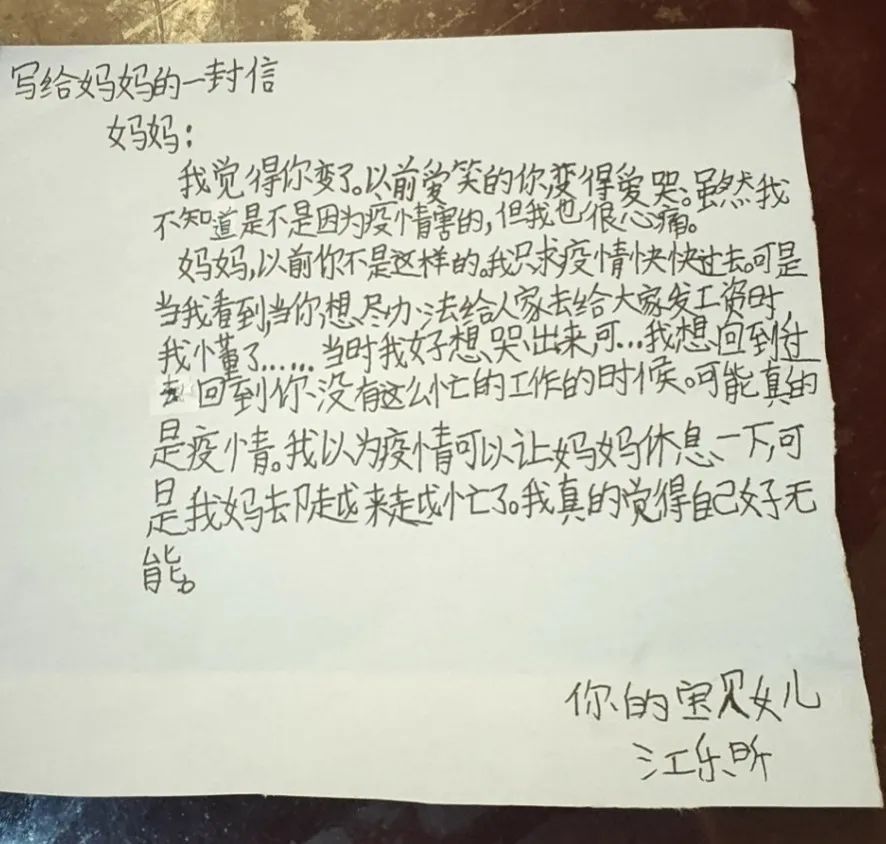 写给妈妈的一封信
妈妈:
我觉得你变了。以前爱笑的你,变得爱哭。虽然我
不知道是不是因为疫情害的,但我也很心痛。
妈妈,以前你不是这样的。我只求疫情快快过去。可是
当我看到,当你想尽办法给人家去给大家发工资时,
我懂了……当时我好想哭出来,可…我想回到过
去 回到你没有这么忙的工作的时候。可能真的
是疫情。我以为疫情可以让妈妈休息一下,可
是我妈去却越来越忙了。我真的觉得自己好无
能。
你的宝贝女儿
江乐昕